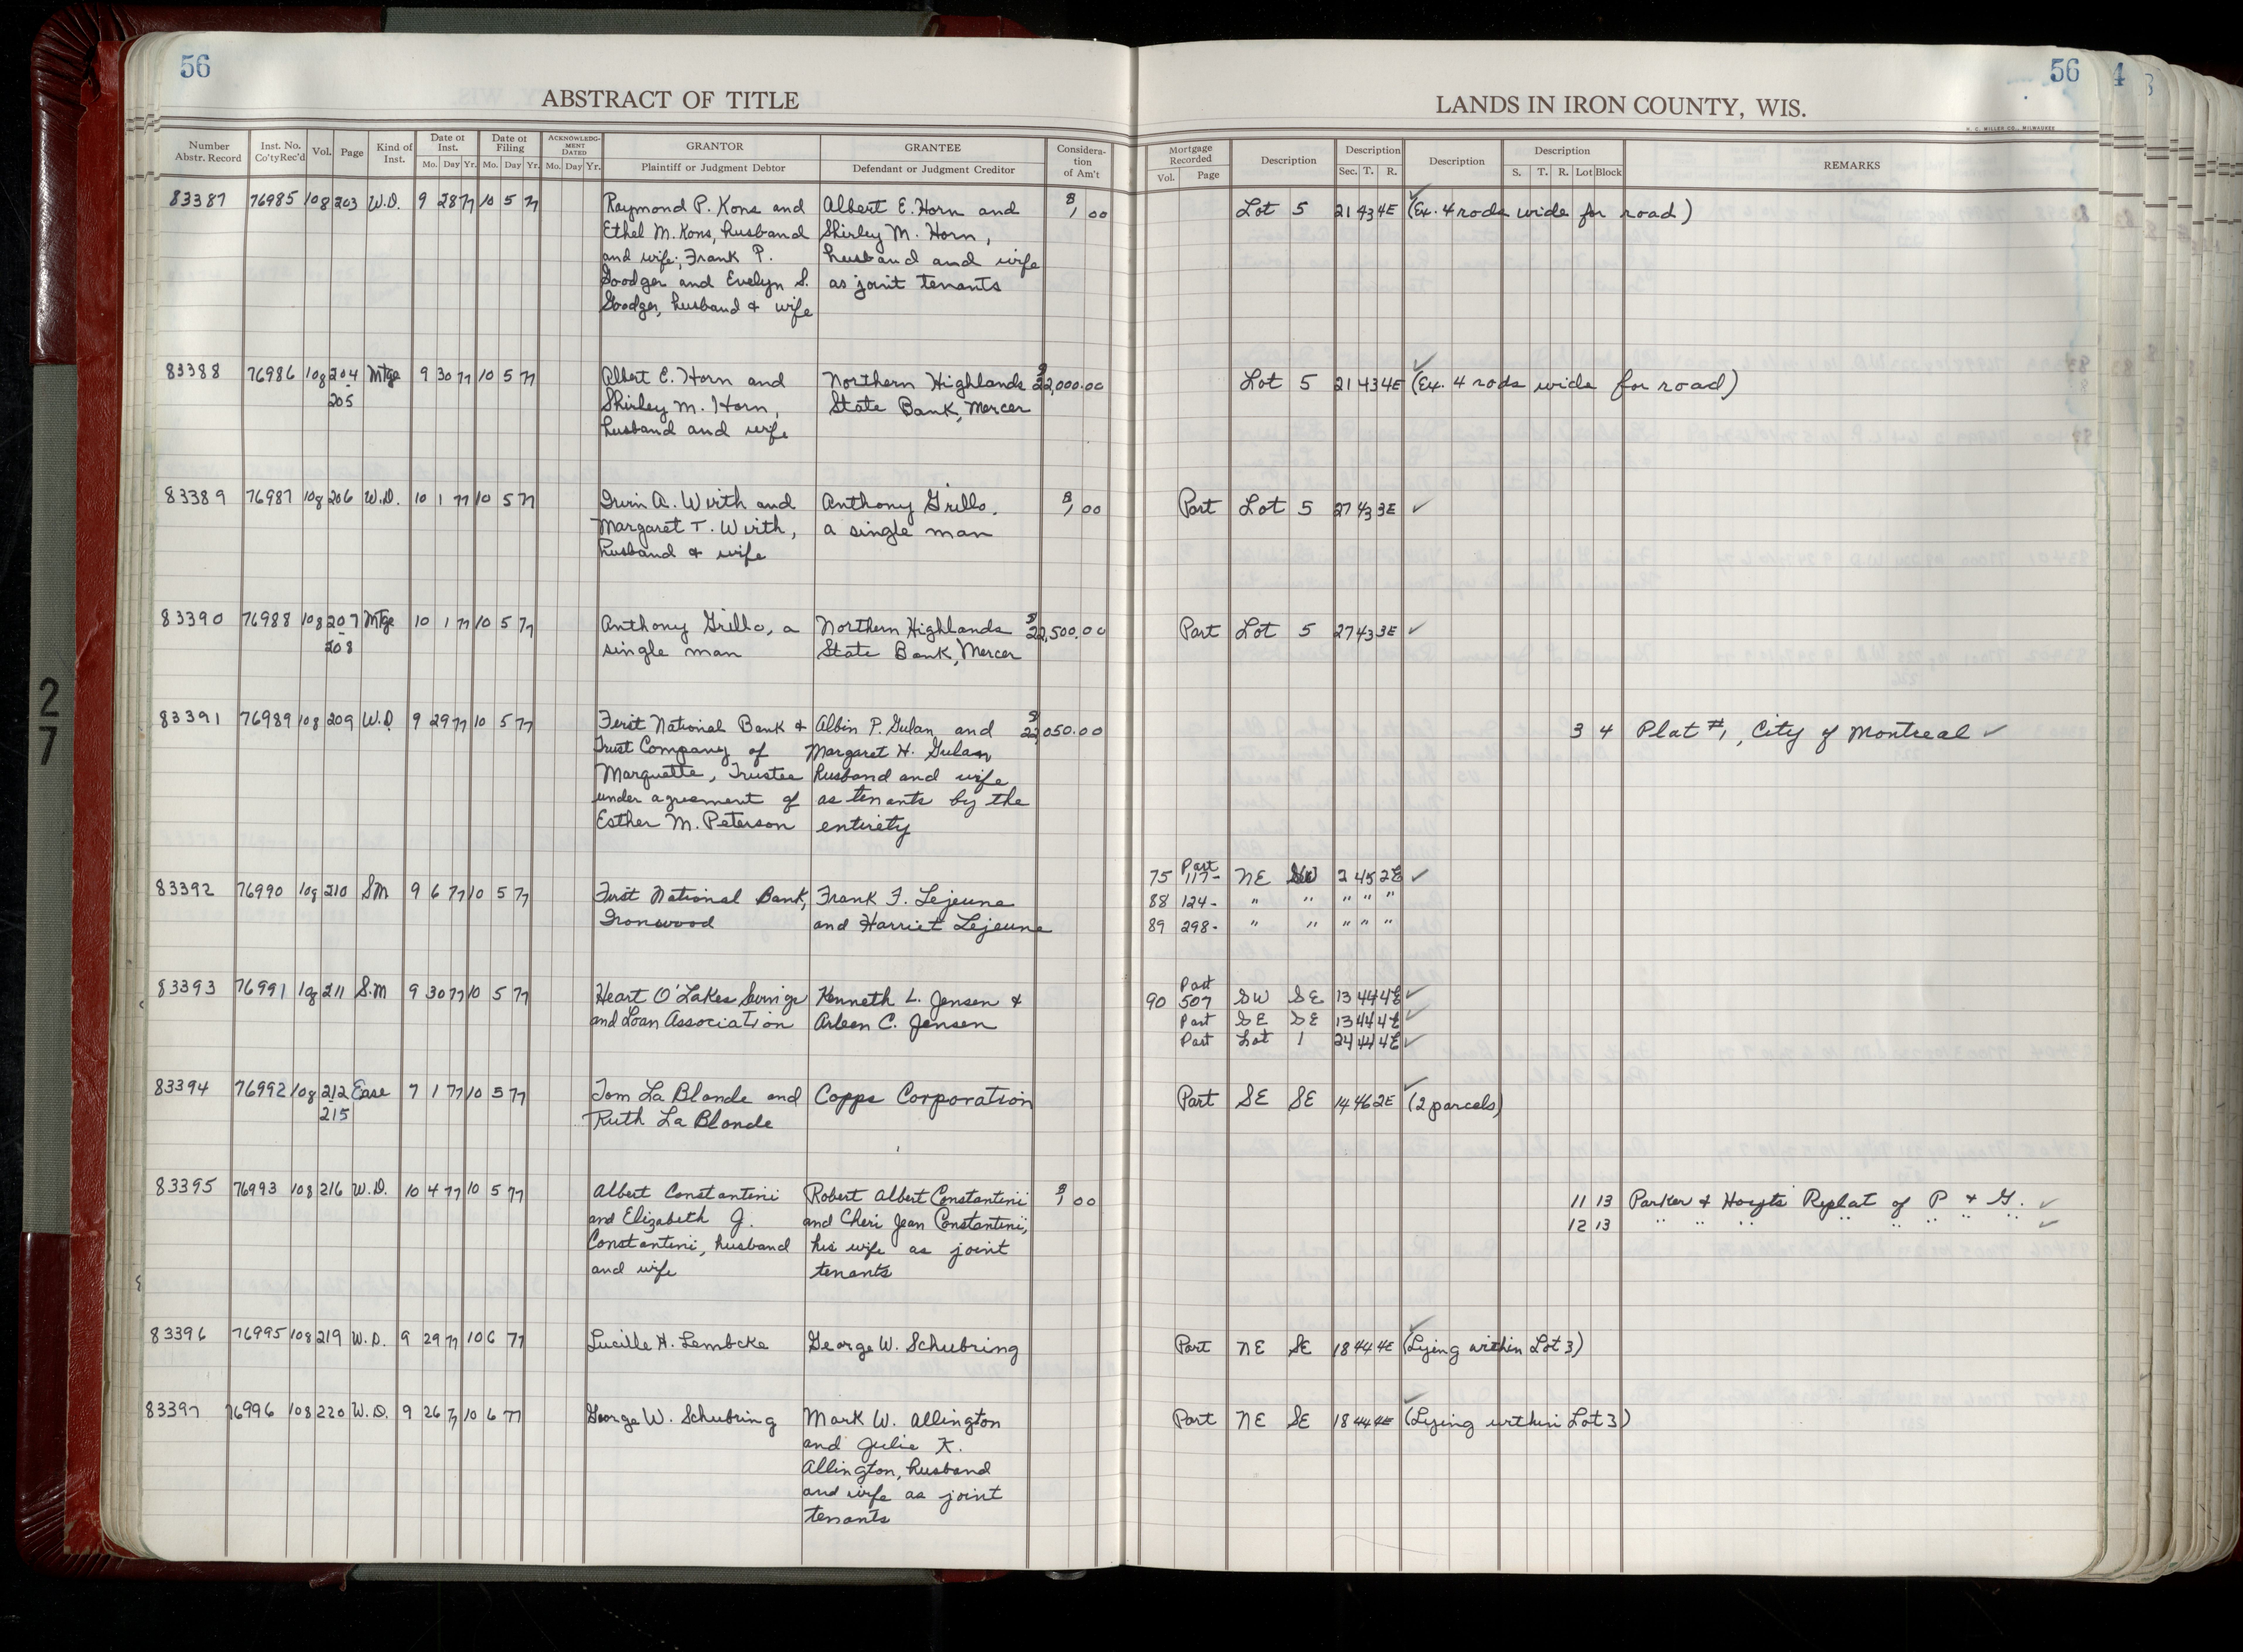 56
ABSTRACT OF TITLE
Number Abstr. Record Inst. No. Co'ty Rec'd Vol. Page Kind of Inst. Date of Inst. Mo. Day Yr. Date of Filing Mo. Day Yr. ACKNOWLEDGMENT DATED Mo. Day Yr. GRANTOR Plaintiff or Judgment Debtor GRANTEE Defendant or Judgment Creditor Consideration of Am't
56
LANDS IN IRON COUNTY, WIS.
H. C. MILLER CO., MILWAUKEE
Mortgage Recorded Vol. Page Description Description Sec. T. R. Description Description S. T. R. Lot Block REMARKS
83387 76985 108 203 W.D. 9 28 77 10 5 77 Raymond P. Kons and Albert E. Horn and $1.00 Lot 5 21 43 4E ✓ (Ex. 4 rods wide for road)
Ethel M. Kons, husband Shirley M. Horn,
and wife; Frank P. husband and wife
Goodger and Evelyn S. as joint tenants
Goodger, husband & wife
83388 76986 108 204 Mtge 9 30 77 10 5 77 Albert E. Horn and Northern Highlands $22,000.00 Lot 5 21 43 4E ✓ (Ex. 4 rods wide for road)
- 205 Shirley M. Horn, State Bank, Mercer
husband and wife
83389 76987 108 206 W.D. 10 1 77 10 5 77 Irvin A. Wirth and Anthony Grillo, $1.00 Part Lot 5 27 43 3E ✓
Margaret T. Wirth, a single man
husband & wife
83390 76988 108 207 Mtge 10 1 77 10 5 77 Anthony Grillo, a Northern Highlands $22,500.00 Part Lot 5 27 43 3E ✓
- 208 single man State Bank, Mercer
83391 76989 108 209 W.D. 9 29 77 10 5 77 First National Bank & Albin P. Gulan and $22,050.00 3 4 Plat #1, City of Montreal ✓
Trust Company of Margaret H. Gulan,
Marquette, Trustee husband and wife
under agreement of as tenants by the
Esther M. Peterson entirety
83392 76990 108 210 SM 9 6 77 10 5 77 First National Bank, Frank F. Lejeune 75 Part 117- NE SW 2 45 2E ✓
Ironwood and Harriet Lejeune 88 124- " " " " "
89 298- " " " " "
83393 76991 108 211 S.M 9 30 77 10 5 77 Heart O'Lakes Savings Kenneth L. Jensen & 90 Part 507 SW SE 13 44 4E ✓
and Loan Association Arleen C. Jensen Part SE SE 13 44 4E ✓
Part Lot 1 24 44 4E ✓
83394 76992 108 212 Ease 7 1 77 10 5 77 Tom La Blonde and Copps Corporation Part SE SE 14 46 2E ✓ (2 parcels)
- 215 Ruth La Blonde
83395 76993 108 216 W.D. 10 4 77 10 5 77 Albert Constantini Robert Albert Constantini $1.00 11 13 Parker & Hoyts Replat of P & G. ✓
and Elizabeth J. and Cheri Jean Constantini, 12 13 " " " " " " " " ✓
Constantini, husband his wife as joint
and wife tenants
83396 76995 108 219 W.D. 9 29 77 10 6 77 Lucille H. Lembcke George W. Schubring Part NE SE 18 44 4E ✓ (Lying within Lot 3)
83397 76996 108 220 W.D. 9 26 77 10 6 77 George W. Schubring Mark W. Allington Part NE SE 18 44 4E ✓ (Lying within Lot 3)
and Julie K.
Allington, husband
and wife as joint
tenants
27
4